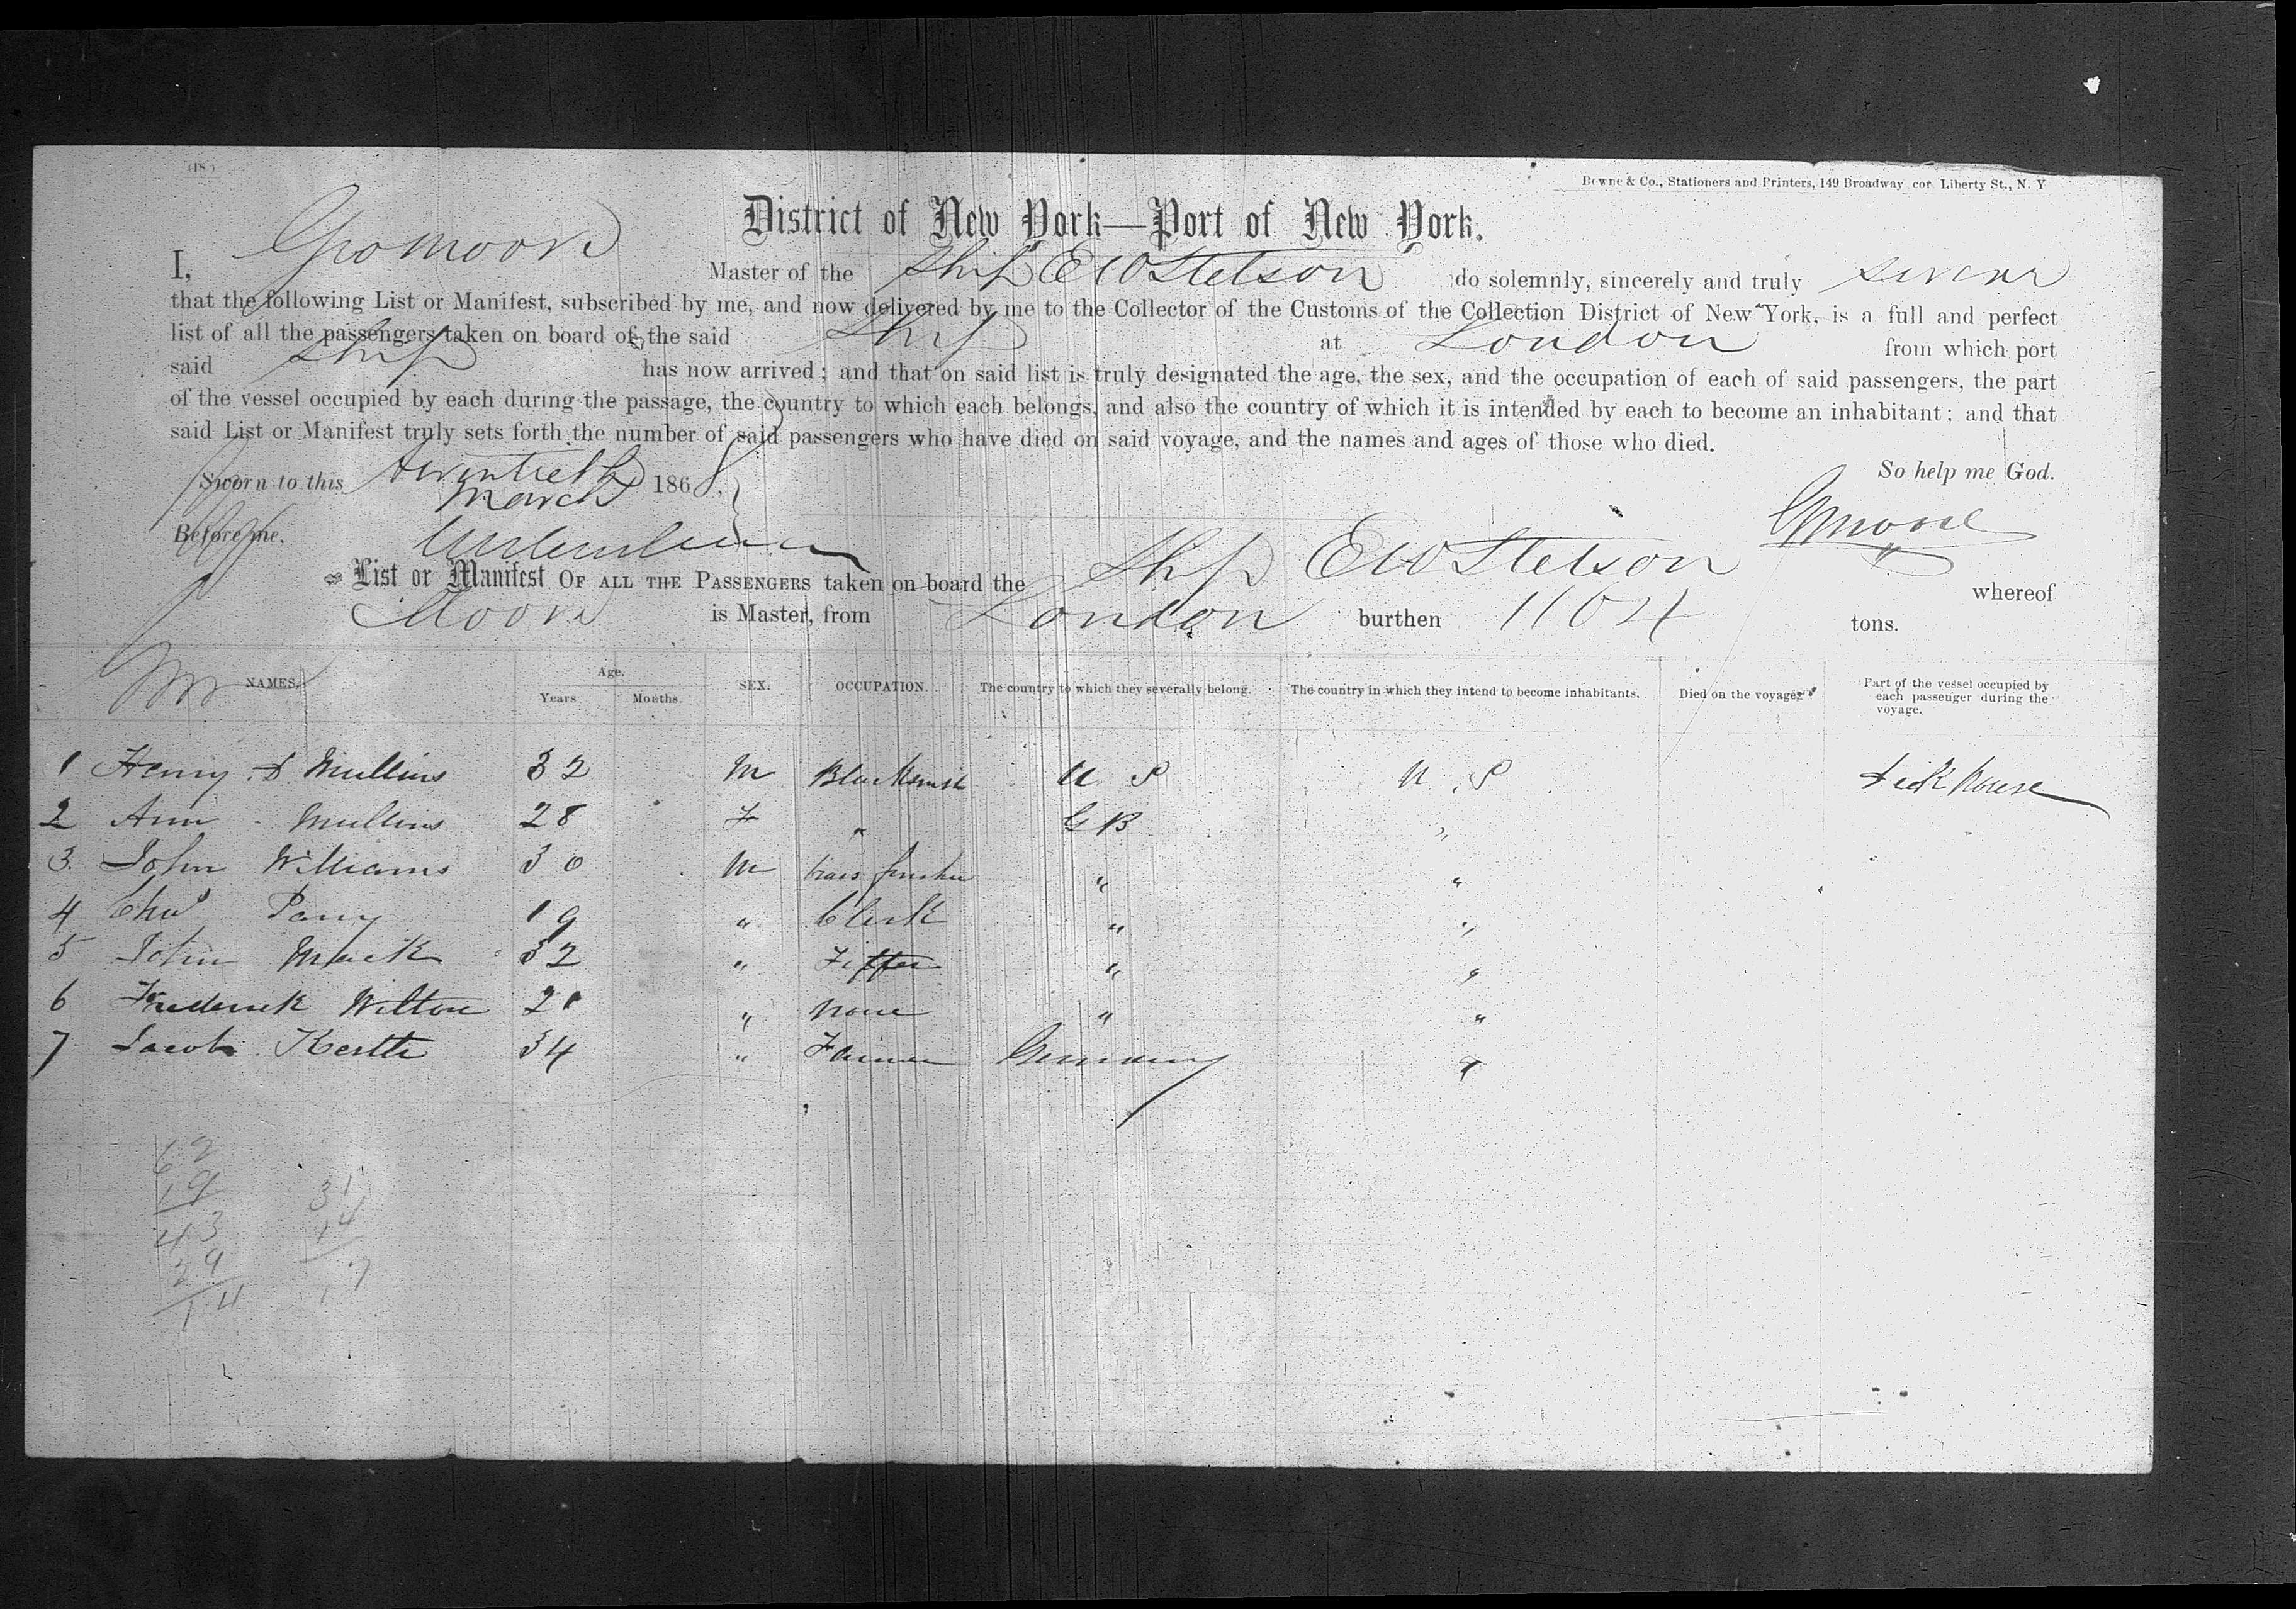 (18)
Bowne & Co., Stationers and Printers, 149 Broadway cor Liberty St., N. Y
District of New York—Port of New York.
I, Geo Moore Master of the Ship E W Stetson do solemnly, sincerely and truly swear
that the following List or Manifest, subscribed by me, and now delivered by me to the Collector of the Customs of the Collection District of New York, is a full and perfect
list of all the passengers taken on board of the said Ship at London from which port
said Ship has now arrived; and that on said list is truly designated the age, the sex, and the occupation of each of said passengers, the part
of the vessel occupied by each during the passage, the country to which each belongs, and also the country of which it is intended by each to become an inhabitant; and that
said List or Manifest truly sets forth the number of said passengers who have died on said voyage, and the names and ages of those who died.
So help me God.
Sworn to this twentieth March 1868.
Before me, G Moore
List or Manifest OF ALL THE PASSENGERS taken on board the Ship E W Stetson whereof
Moore is Master, from London burthen 1104 tons.
NAMES. Age. Years Months. SEX. OCCUPATION. The country to which they severally belong. The country in which they intend to become inhabitants. Died on the voyage. Part of the vessel occupied by each passenger during the voyage.
1 Henry Mullins 32 M Blacksmith U S U S deck house
2 Ann Mullins 28 F " G B "
3 John Williams 30 M brass finisher " "
4 Chas Parry 19 " Clerk " "
5 John Mack 32 " Fitter " "
6 Frederick Wilton 21 " None " "
7 Jacob 34 " Farmer Germany "
62
19 31
43 14
29 17
14